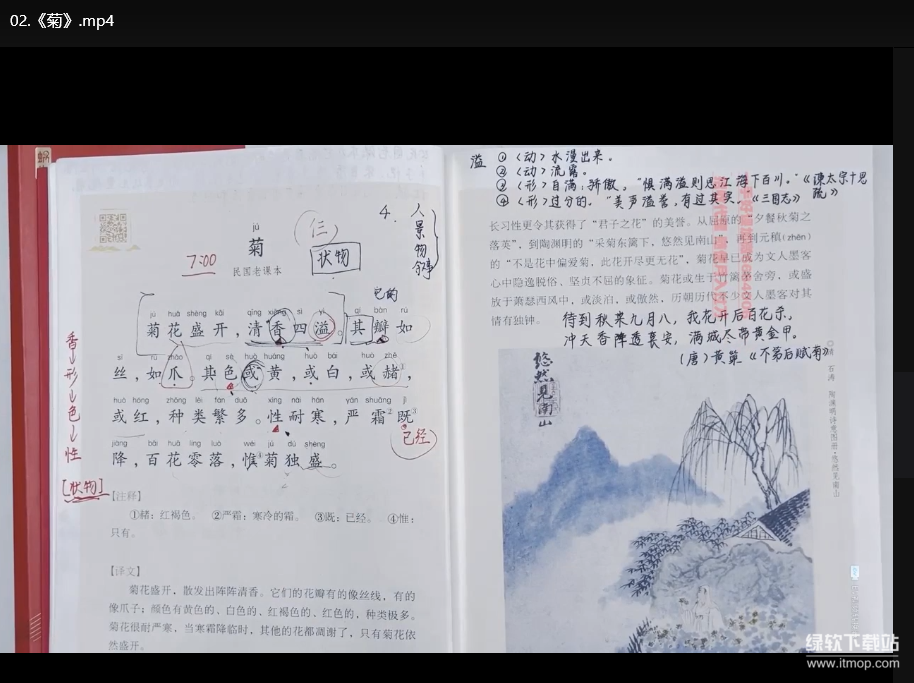 02.《菊》.mp4
jú
菊
民国老课本
7:00
(三)
状物
4.
人
景
物
事
它的
jú huā shèng kāi qīng xiāng sì yì qí bàn rú
菊花盛开，清香四溢。其瓣如
sī rú zhǎo qí sè huò huáng huò bái huò zhě
丝，如爪。其色或黄，或白，或赭，
huò hóng zhǒng lèi fán duō xìng nài hán yán shuāng jì
或红，种类繁多。性耐寒，严霜既
已经
jiàng bǎi huā líng luò wéi jú dú shèng
降，百花零落，惟菊独盛。
香→形→色→性
[状物]
【注释】
①赭：红褐色。 ②严霜：寒冷的霜。 ③既：已经。 ④惟：
只有。
【译文】
菊花盛开，散发出阵阵清香。它们的花瓣有的像丝线，有的
像爪子；颜色有黄色的、白色的、红褐色的、红色的，种类极多。
菊花很耐严寒，当寒霜降临时，其他的花都凋谢了，只有菊花依
然盛开。
溢 ①〈动〉水漫出来。
②〈动〉流露。
③〈形〉自满；骄傲。"惧满溢则思江海下百川。"《谏太宗十思疏》
④〈形〉过分的。"美声溢誉，有过其实。"《三国志》
长习性更令其获得了"君子之花"的美誉。从屈原的"夕餐秋菊之
落英"，到陶渊明的"采菊东篱下，悠然见南山"，再到元稹(zhěn)
的"不是花中偏爱菊，此花开尽更无花"，菊花早已成为文人墨客
心中隐逸脱俗、坚贞不屈的象征。菊花或生于竹篱茅舍旁，或盛
放于萧瑟西风中，或淡泊，或傲然，历朝历代不少文人墨客对其
情有独钟。
待到秋来九月八，我花开后百花杀，
冲天香阵透长安，满城尽带黄金甲。
(唐)黄巢《不第后赋菊》
悠然见南山
石涛 陶渊明诗意图册·悠然见南山
绿软下载站
www.itmop.com